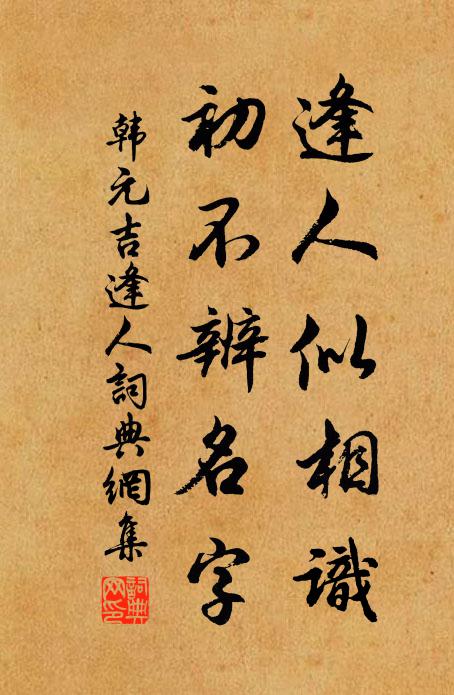 逢人似相識
初不辨名字
韓元吉逢人詞典網集
詞典網印